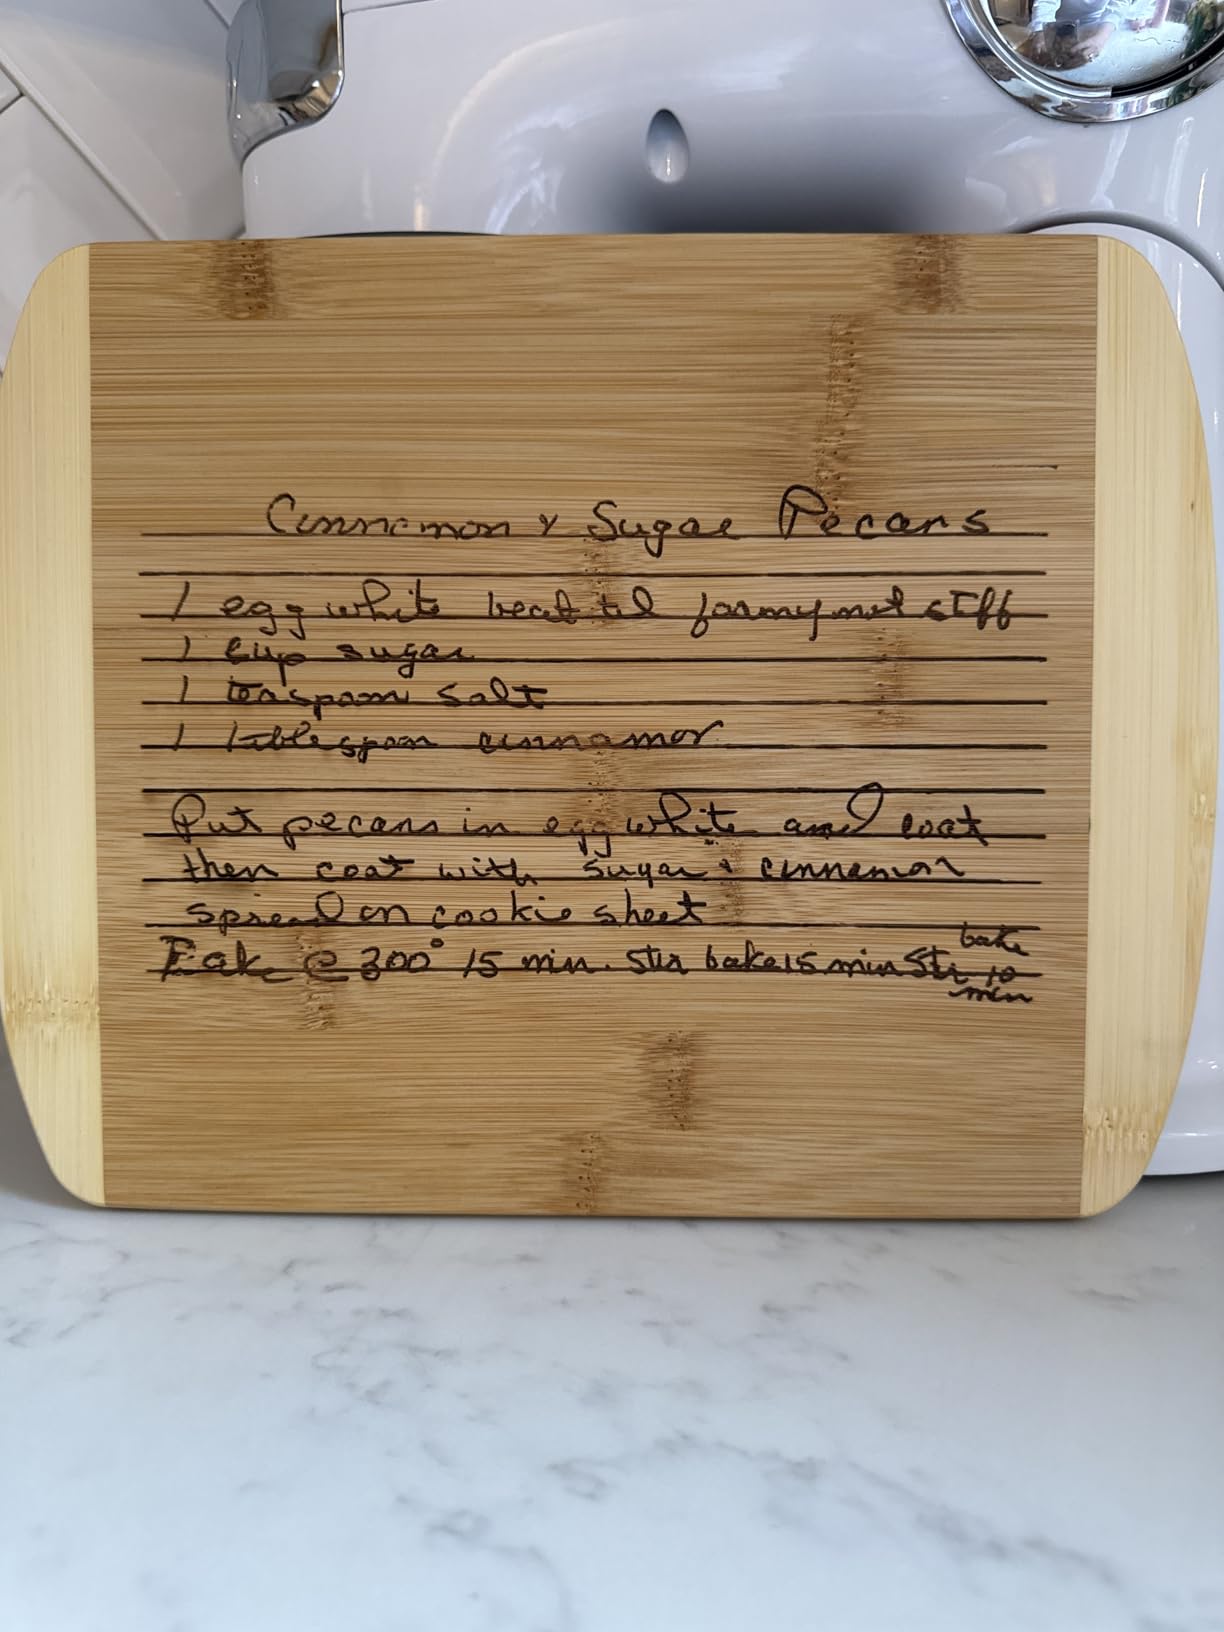 Cinnamon & Sugar Pecans
1 egg white beat til formy not stiff
1 cup sugar
1 teaspoon salt
1 tablespoon cinnamon
Put pecans in egg white and coat
then coat with sugar & cinnamon
spread on cookie sheet
Bake @ 300° 15 min. Stir bake 15 min Stir bake 10 min